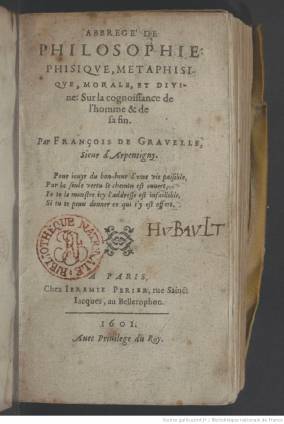 ABBREGE' DE
PHILOSOPHIE:
PHISIQVE, METAPHISI-
QVE, MORALE, ET DIVI-
ne: Sur la cognoissance de
l'homme & de
sa fin.
Par FRANÇOIS DE GRAVELLE,
Sieur d'Arpentigny.
Pour iouyr du bon-heur d'vne vie paisible,
Par la seule vertu le chemin est ouuert,
Ie te le monstre icy l'addresse est infaillible,
Si tu te peux donner ce qui t'y est offert.
HVBAVLT
BIBLIOTHÈQUE NATIONALE
A PARIS,
Chez IEREMIE PERIER, rue Sainct
Iacques, au Bellerophon.
1601.
Auec Priuilege du Roy.
Source gallica.bnf.fr / Bibliothèque nationale de France